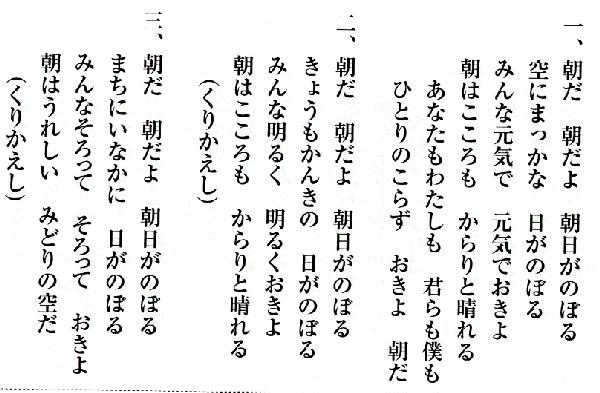 一、朝だ　朝だよ　朝日がのぼる
空にまっかな　日がのぼる
みんな元気で　元気でおきよ
朝はこころも　からりと晴れる
あなたもわたしも　君らも僕も
ひとりのこらず　おきよ　朝だ
二、朝だ　朝だよ　朝日がのぼる
きょうもかんきの　日がのぼる
みんな明るく　明るくおきよ
朝はこころも　からりと晴れる
（くりかえし）
三、朝だ　朝だよ　朝日がのぼる
まちにいなかに　日がのぼる
みんなそろって　そろって　おきよ
朝はうれしい　みどりの空だ
（くりかえし）